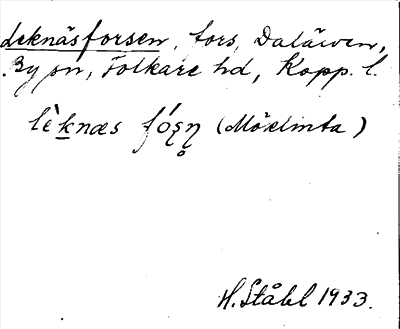 Leknäsforsen, fors, Dalälven,
By sn, Folkare hd, Kopp. l.
lè̀knæs fó̢ʂn̥ (Möklinta)
H. Ståhl 1933.